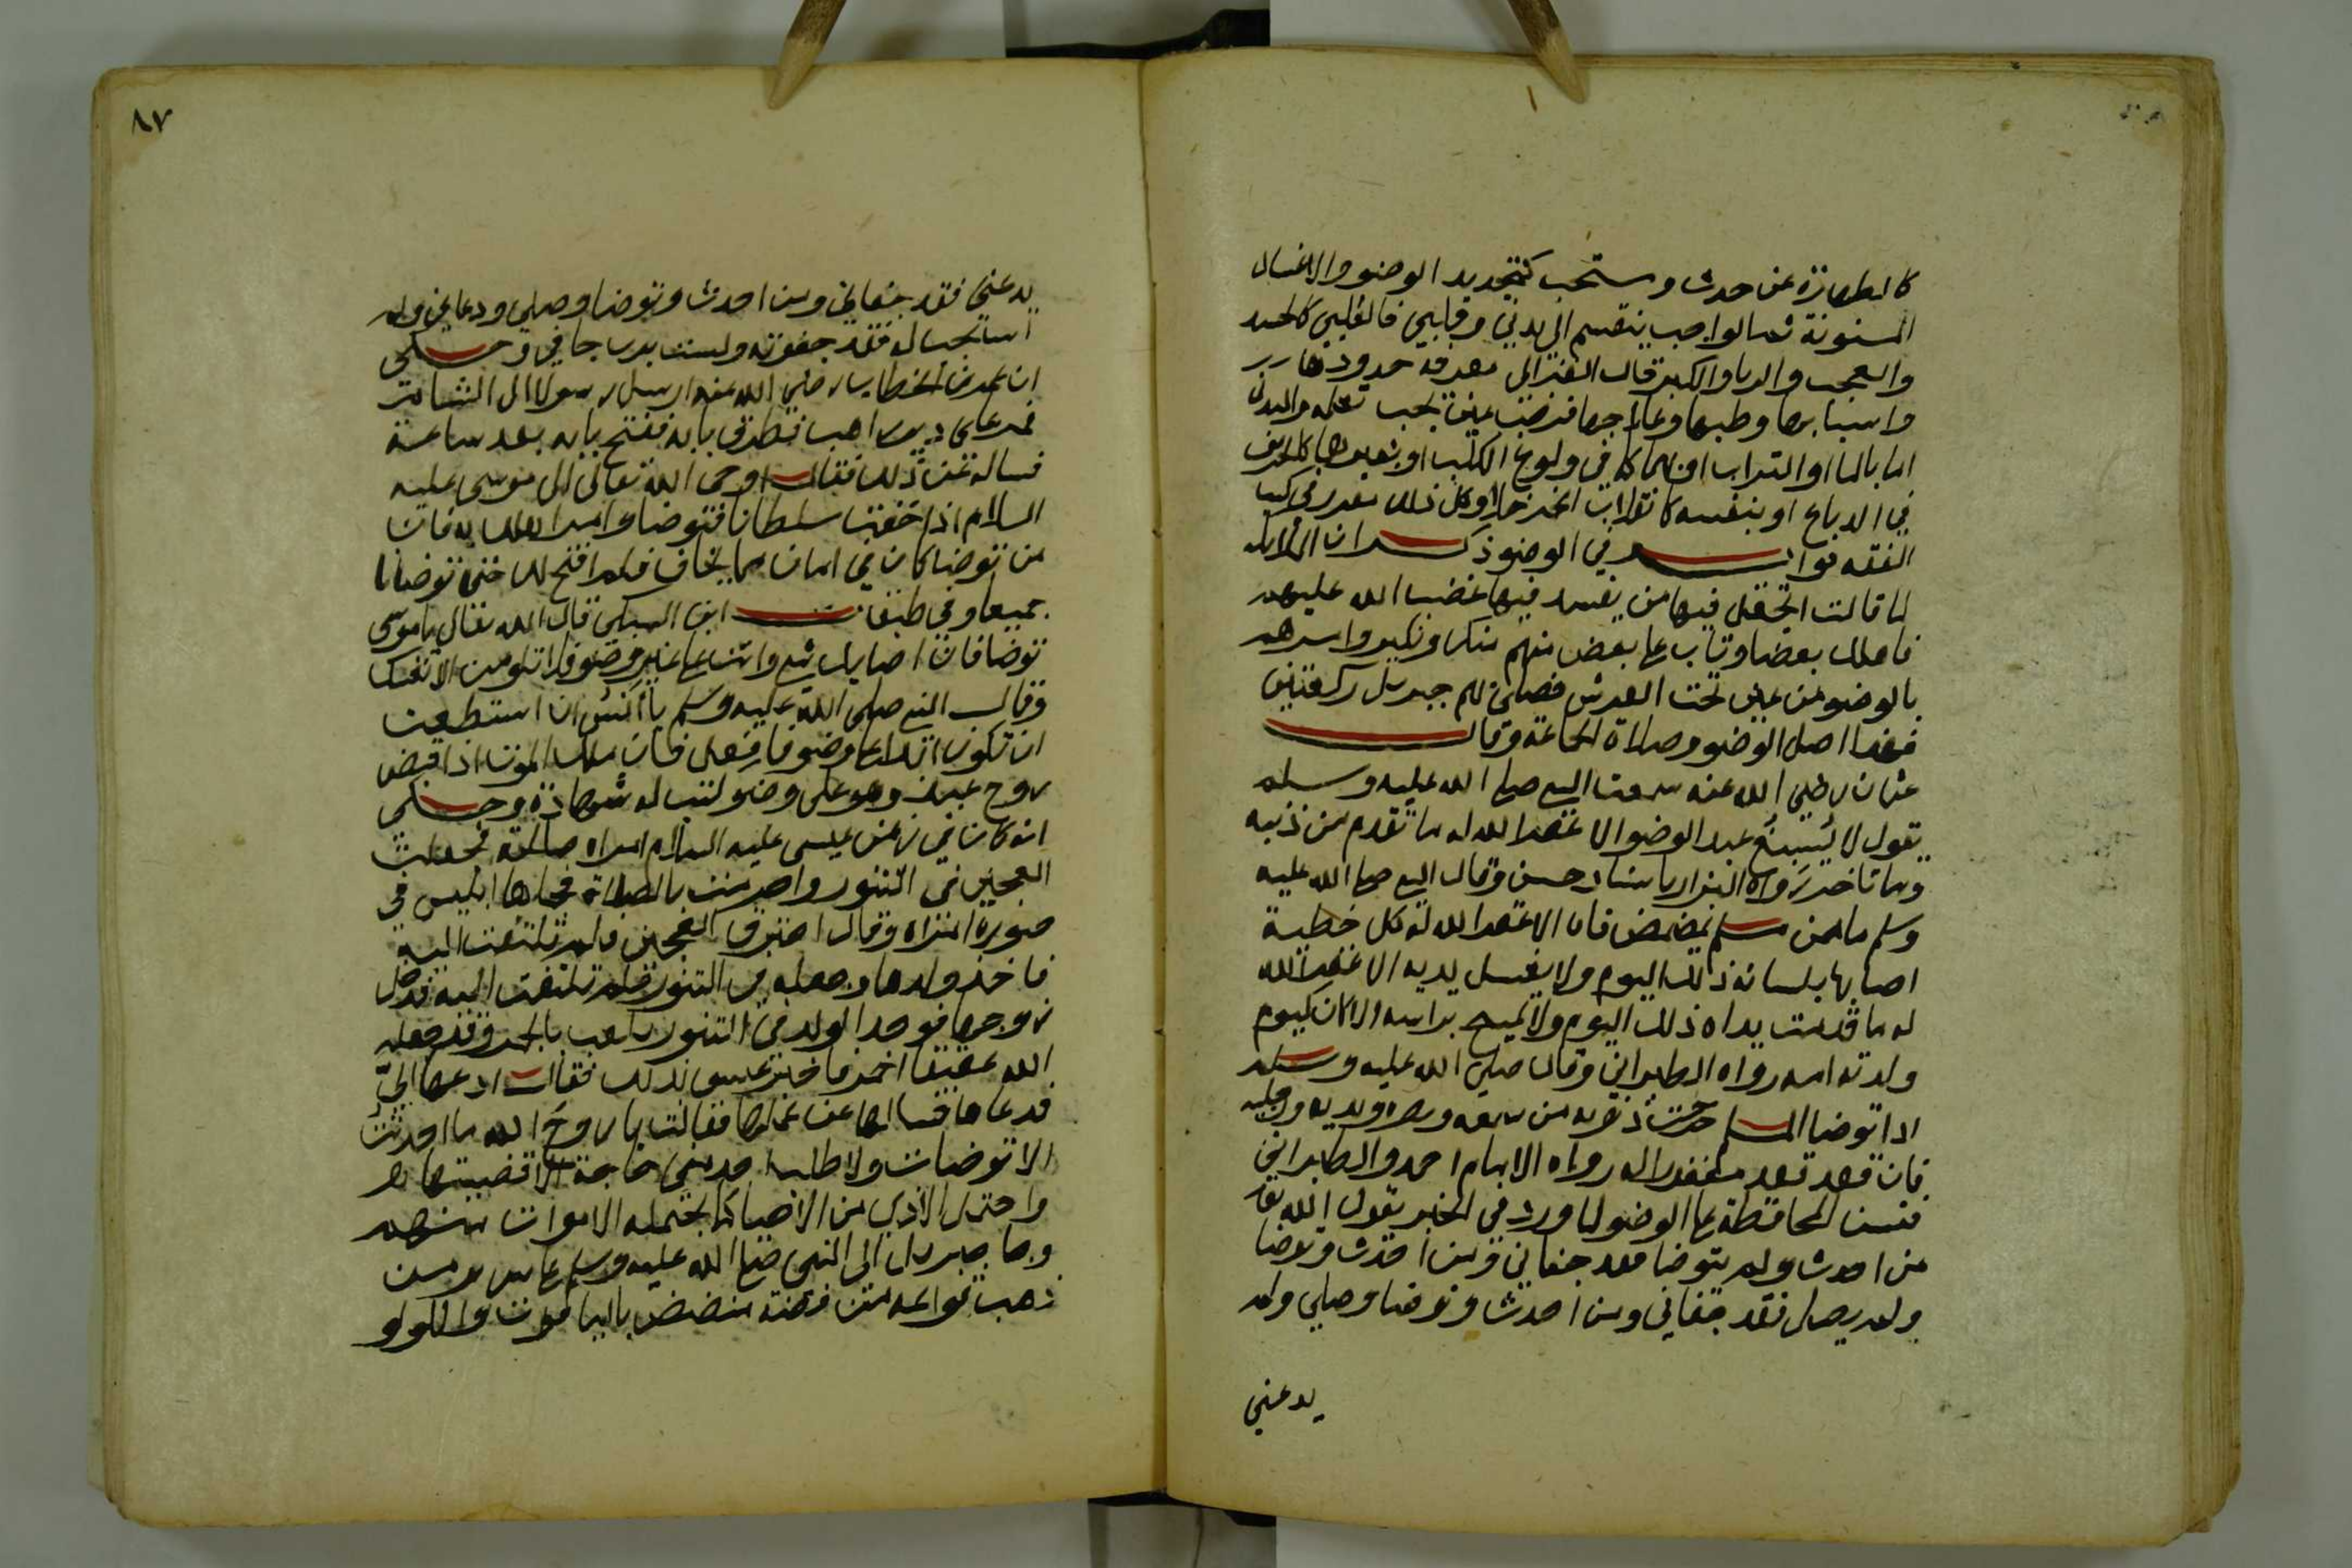 كالطهارة عن حدث ومستحب كتجديد الوضو والاغسال
المسنونة ثم الواجب ينقسم الى بدني وقلبي فالقلبي كالحسد
والعجب والريا والكبر قال الغزالي معرفة حدودها
واسبابها وطبها وعلاجها فرض عين يجب تعلمه والبدني
اما بالما او التراب او بهما كما في ولوغ الكلب او بغيرهما كالحريف
في الدباغ او بنفسه كانقلاب الخمر خلا وكل ذلك مقرر في كتب
الفقه فوايد في الوضو ذكر ان الملايكة
لما قالت اتجعل فيها من يفسد فيها غضب الله عليهم
فاهلك بعضا وتاب على بعض منهم منكر ونكير وامرهم
بالوضو من عين تحت العرش فصلى بهم جبريل ركعتين
فهذا اصل الوضو وصلاة الجماعة وقال
عثمان رضي الله عنه سمعت النبي صلى الله عليه وسلم
يقول لا يسبغ عبد الوضو الا غفر الله له ما تقدم من ذنبه
وما تاخر رواه البزار باسناد حسن وقال النبي صلى الله عليه
وسلم ما من مسلم يمضمض فاه الا غفر الله له كل خطية
اصابها بلسانه ذلك اليوم ولا يغسل يديه الا غفر الله
له ما قدمت يداه ذلك اليوم ولا يمسح براسه الا كان كيوم
ولدته امه رواه الطبراني وقال صلى الله عليه وسلم
اذا توضا المسلم خرجت ذنوبه من سمعه وبصره ويديه ورجليه
فان قعد قعد مغفورا له رواه الامام احمد والطبراني
فتسن المحافظة على الوضو لما ورد في الخبر يقول الله تعا
من احدث ولم يتوضا فقد جفاني ومن احدث وتوضا
ولم يصل فقد جفاني ومن احدث وتوضا وصلى ولم
يدعني
٨٧
يدعني فقد جفاني ومن احدث وتوضا وصلى ودعاني ولم
استجب له فقد جفوته ولست برب جافي وحكى
ان عمر بن الخطاب رضي الله عنه ارسل رسولا الى الشام
فمر على دير راهب فطرق بابه ففتح بابه بعد ساعة
فساله عن ذلك فقال اوحى الله تعالى الى موسى عليه
السلام اذا خفت سلطانا فتوضا وامر اهلك به فان
من توضا كان في امان مما يخاف فلم افتح لك حتى توضانا
جميعا وفي طبقات ابن السبكي قال الله تعالى يا موسى
توضا فان اصابك شي وانت على غير وضو فلا تلومن الا نفسك
وقال النبي صلى الله عليه وسلم يا انس ان استطعت
ان تكون ابدا على وضو فافعل فان ملك الموت اذا قبض
روح عبد وهو على وضو كتب له شهادة وحكى
انه كان في زمن عيسى عليه السلام امراه صالحة فجعلت
العجين في التنور واحرمت بالصلاة فجاها ابليس في
صورة امراه وقال احترق العجين فلم تلتفت اليه
فاخذ ولدها وجعله في التنور فلم تلتفت اليه فدخل
زوجها فوجد الولد في التنور يلعب بالجمر وقد جعله
الله عقيقا احمر فاخبر عيسى بذلك فقال ادعها اليّ
فدعاها فسالها عن عملها فقالت يا روح الله ما احدثت
الا توضات ولا طلب احد مني حاجة الا قضيتها له
واحتمل الاذي من الاحيا كما يحتمله الاموات منهم
وجا جبريل الى النبي صلى الله عليه وسلم على سرير من
ذهب قوايمه من فضة منضض بالياقوت واللولو